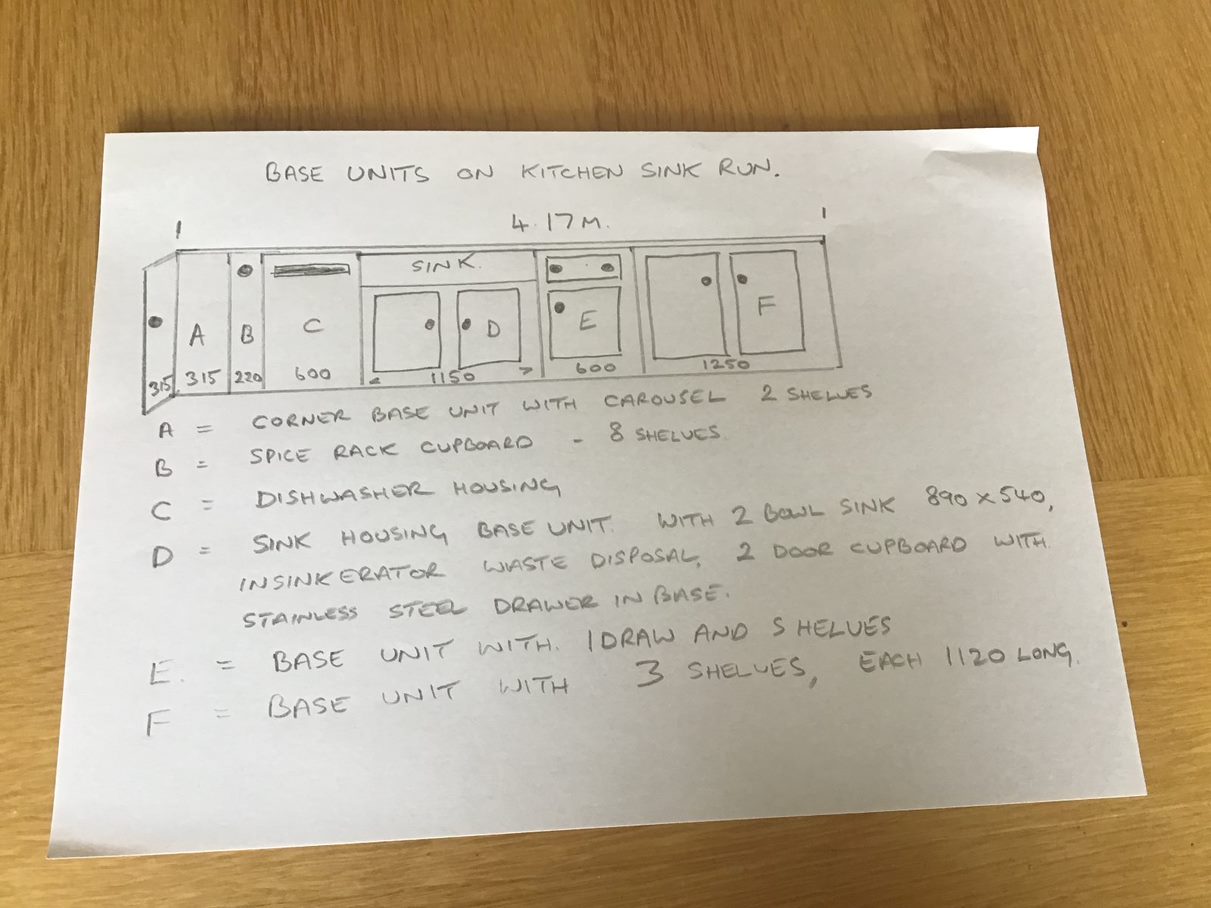 BASE UNITS ON KITCHEN SINK RUN.
4.17M.
SINK.
A B C D E F
315 315 220 600 1150 600 1250
A = CORNER BASE UNIT WITH CAROUSEL 2 SHELVES
B = SPICE RACK CUPBOARD - 8 SHELVES.
C = DISHWASHER HOUSING
D = SINK HOUSING BASE UNIT. WITH 2 BOWL SINK 890 x 540,
INSINKERATOR WASTE DISPOSAL, 2 DOOR CUPBOARD WITH
STAINLESS STEEL DRAWER IN BASE.
E. = BASE UNIT WITH. 1 DRAW AND SHELVES
F = BASE UNIT WITH 3 SHELVES, EACH 1120 LONG.